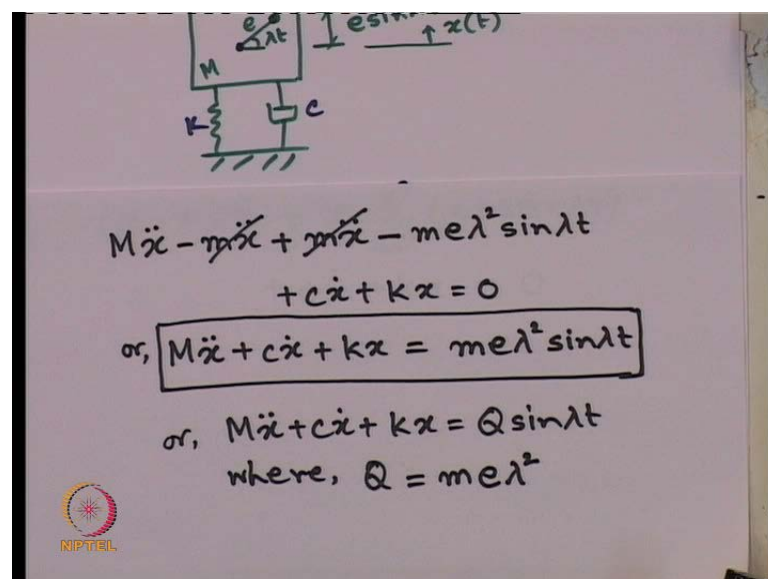 e
λt
e sin
x(t)
M
K
C
Mẍ − mẍ + mẍ − meλ² sin λt
+ cẋ + kx = 0
or, Mẍ + cẋ + kx = meλ² sin λt
or, Mẍ + cẋ + kx = Q sin λt
where, Q = meλ²
NPTEL